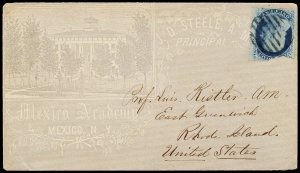 J. D. STEELE, A.
PRINCIPAL
Mexico Academy
MEXICO, N.Y.
Prof. Luis. Kistler A.M.
East Greenwich
Rhode Island.
United States